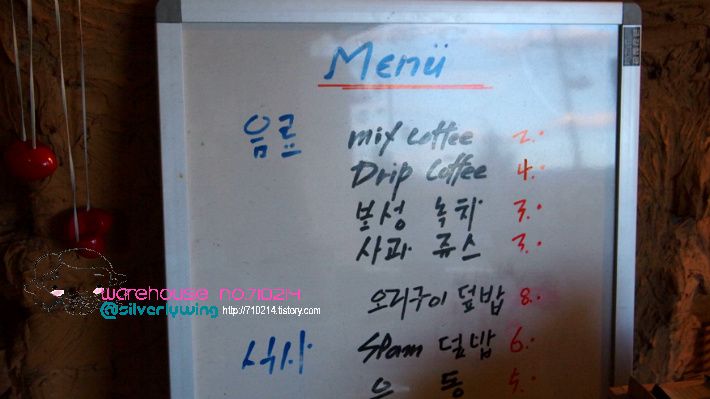 Menü
음료
mix coffee 2.
Drip Coffee 4.
보성 녹차 3.
사과 쥬스 3.
오리구이 덮밥 8.
식사
Spam 덮밥 6.
우동 5.
warehouse no.710214
@silverlywing http://710214.tistory.com